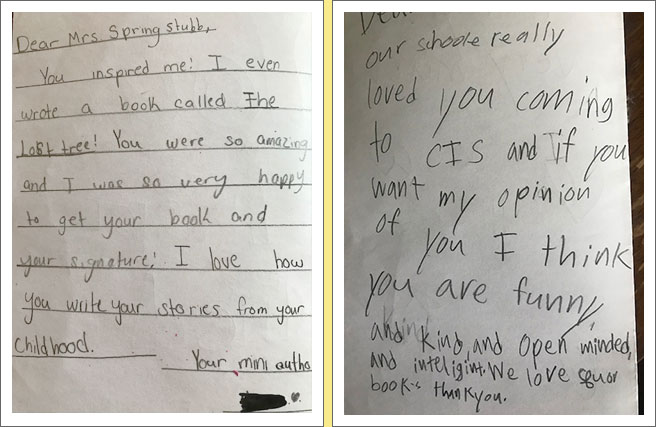 Dear Mrs. Springstubb,
You inspired me! I even
wrote a book called The
Lost tree! You were so amazing
and I was so very happy
to get your book and
your signature! I love how
you write your stories from your
childhood.
Your mini autho
our schoole really
loved you coming
to CIS and if you
want my opinion
of you I think
you are funny
and kind and open minded,
and inteligint. We love
book's thankyou.